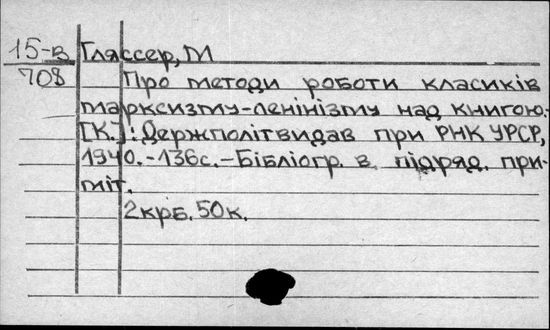 15-в Гляссер, М
708 Про методи роботи класиків
марксизму-ленінізму над книгою.
[К.]: Держполітвидав при РНК УРСР,
1940.-136с.-Бібліогр. в підряд. при-
міт.
2крб. 50к.